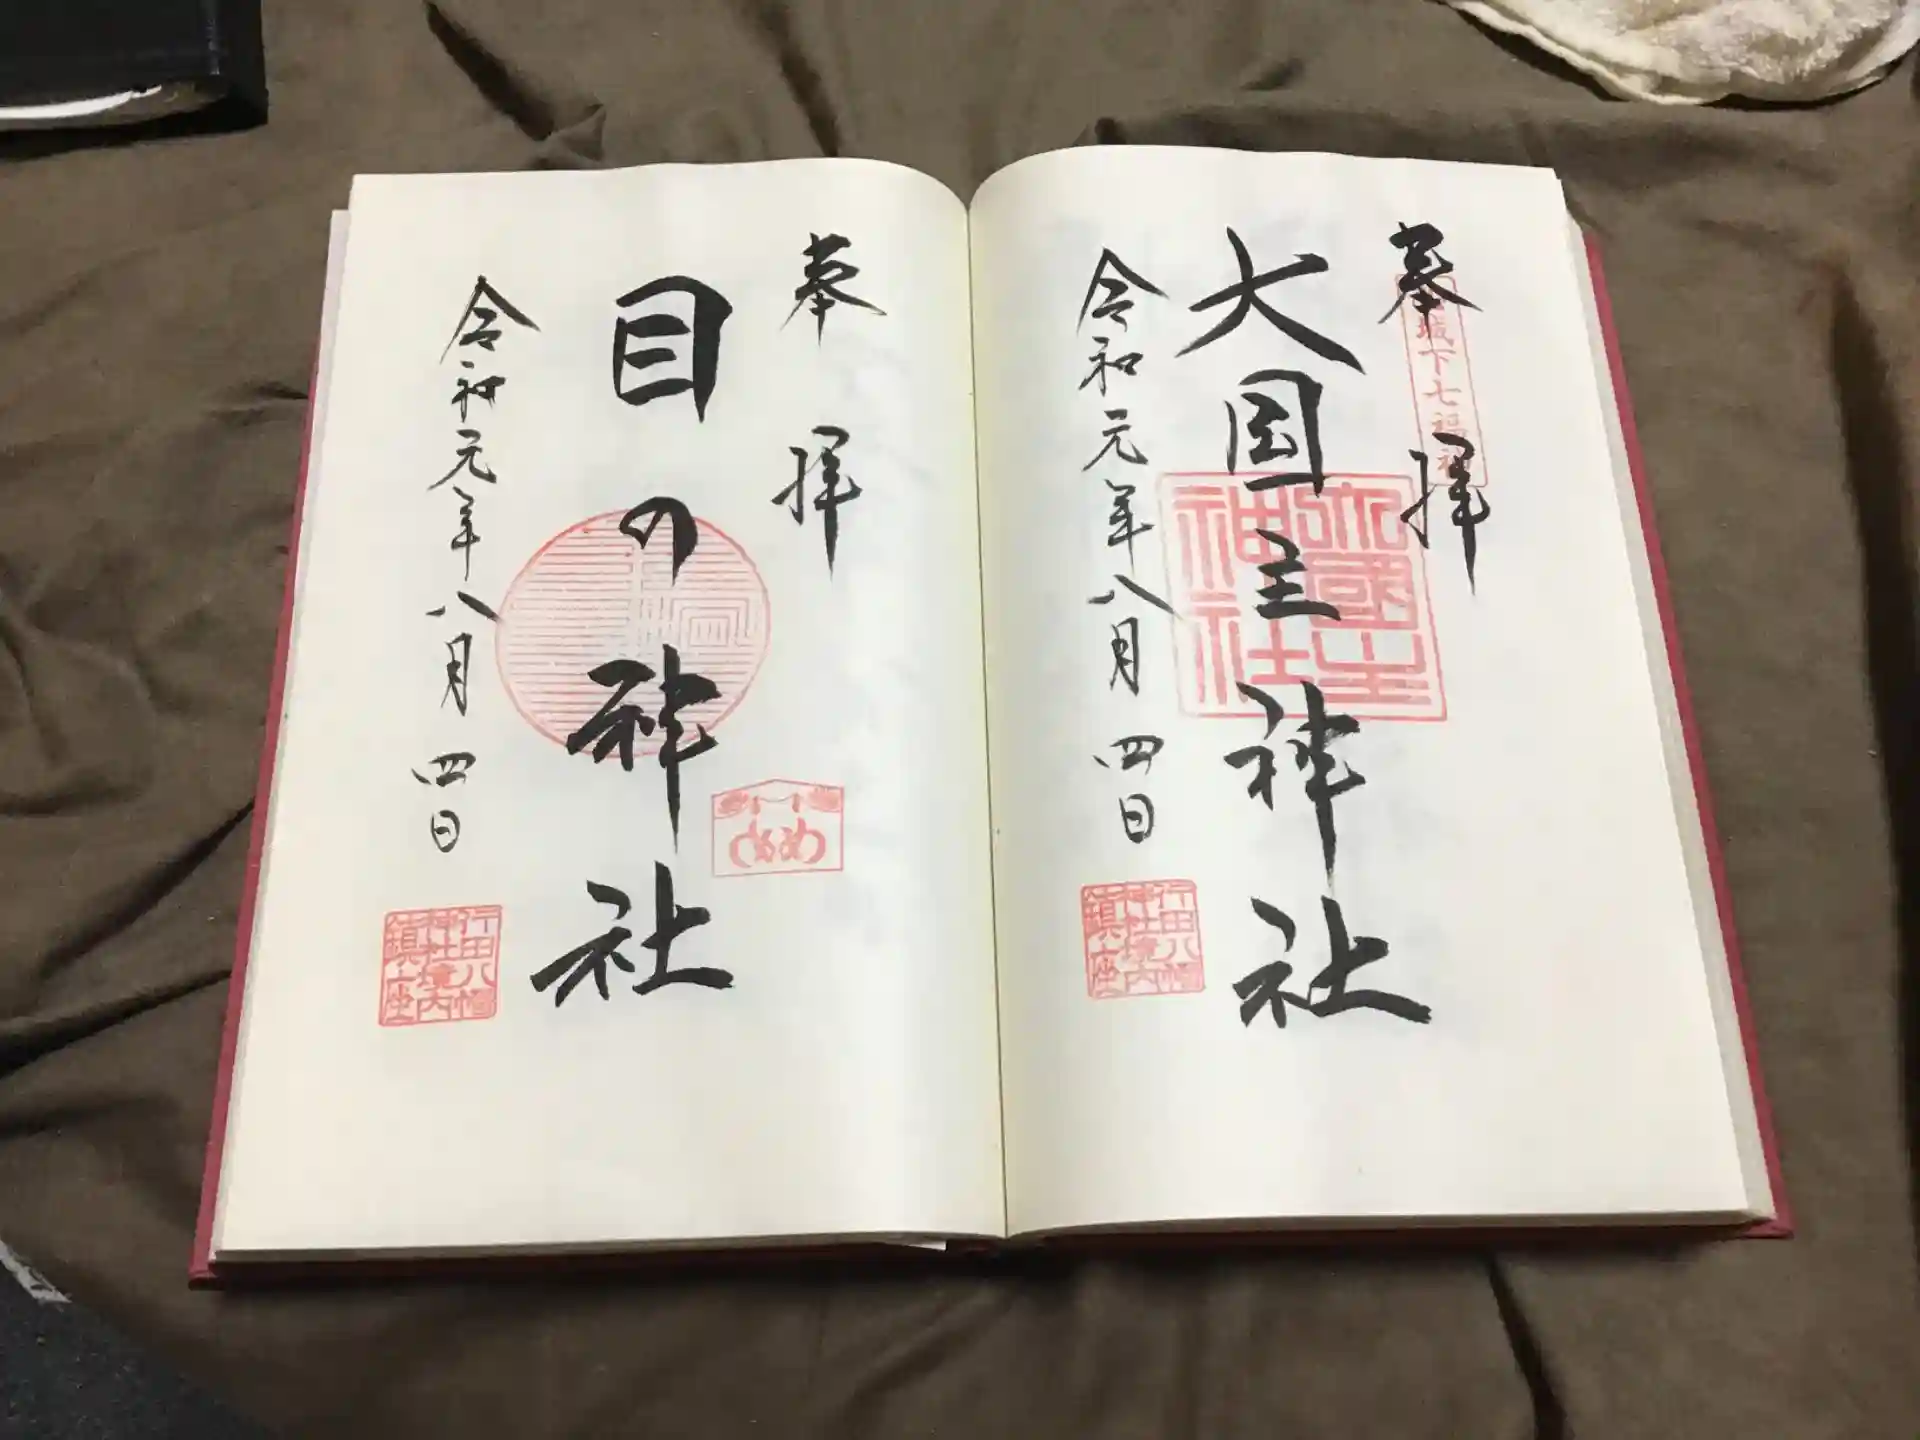 奉拝
城下七福神
大国主神社
大國主
神社
令和元年八月四日
行田八幡
神社境内
鎮座
奉拝
目の神社
め め
令和元年八月四日
行田八幡
神社境内
鎮座